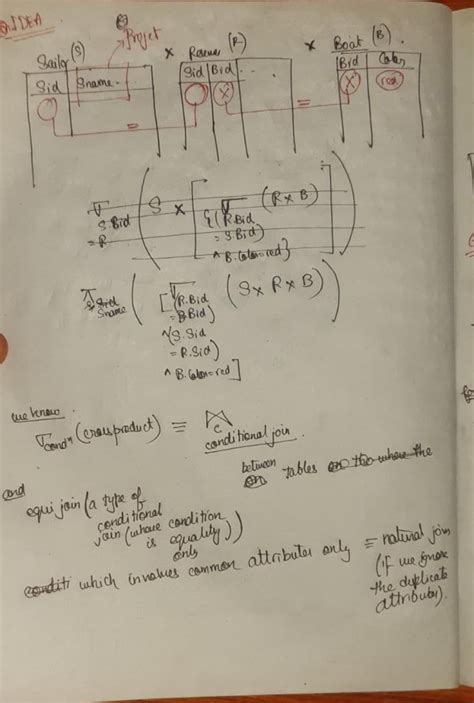 IDEA
Projet
Sailor (S) × Reserve (R) × Boat (B).
Sid Sname Sid Bid ... Bid Color
× × red
= =
σ ( S × [ σ (R × B) ] )
S.Bid {(R.Bid
= R = S.Bid)
^ B.Color=red}
π ( [ σ (S × R × B) )
Sname (R.Bid
= B.Bid)
^(S.Sid
= R.Sid)
^ B.Color=red]
we know
σcondⁿ (crossproduct) ≡ ⋈c
conditional join.
between
tables on the where the
and
equi join (a type of
conditional
join (where condition
is equality))
only
conditi which involves common attributes only ≡ natural join
(if we ignore
the duplicate
attributes).